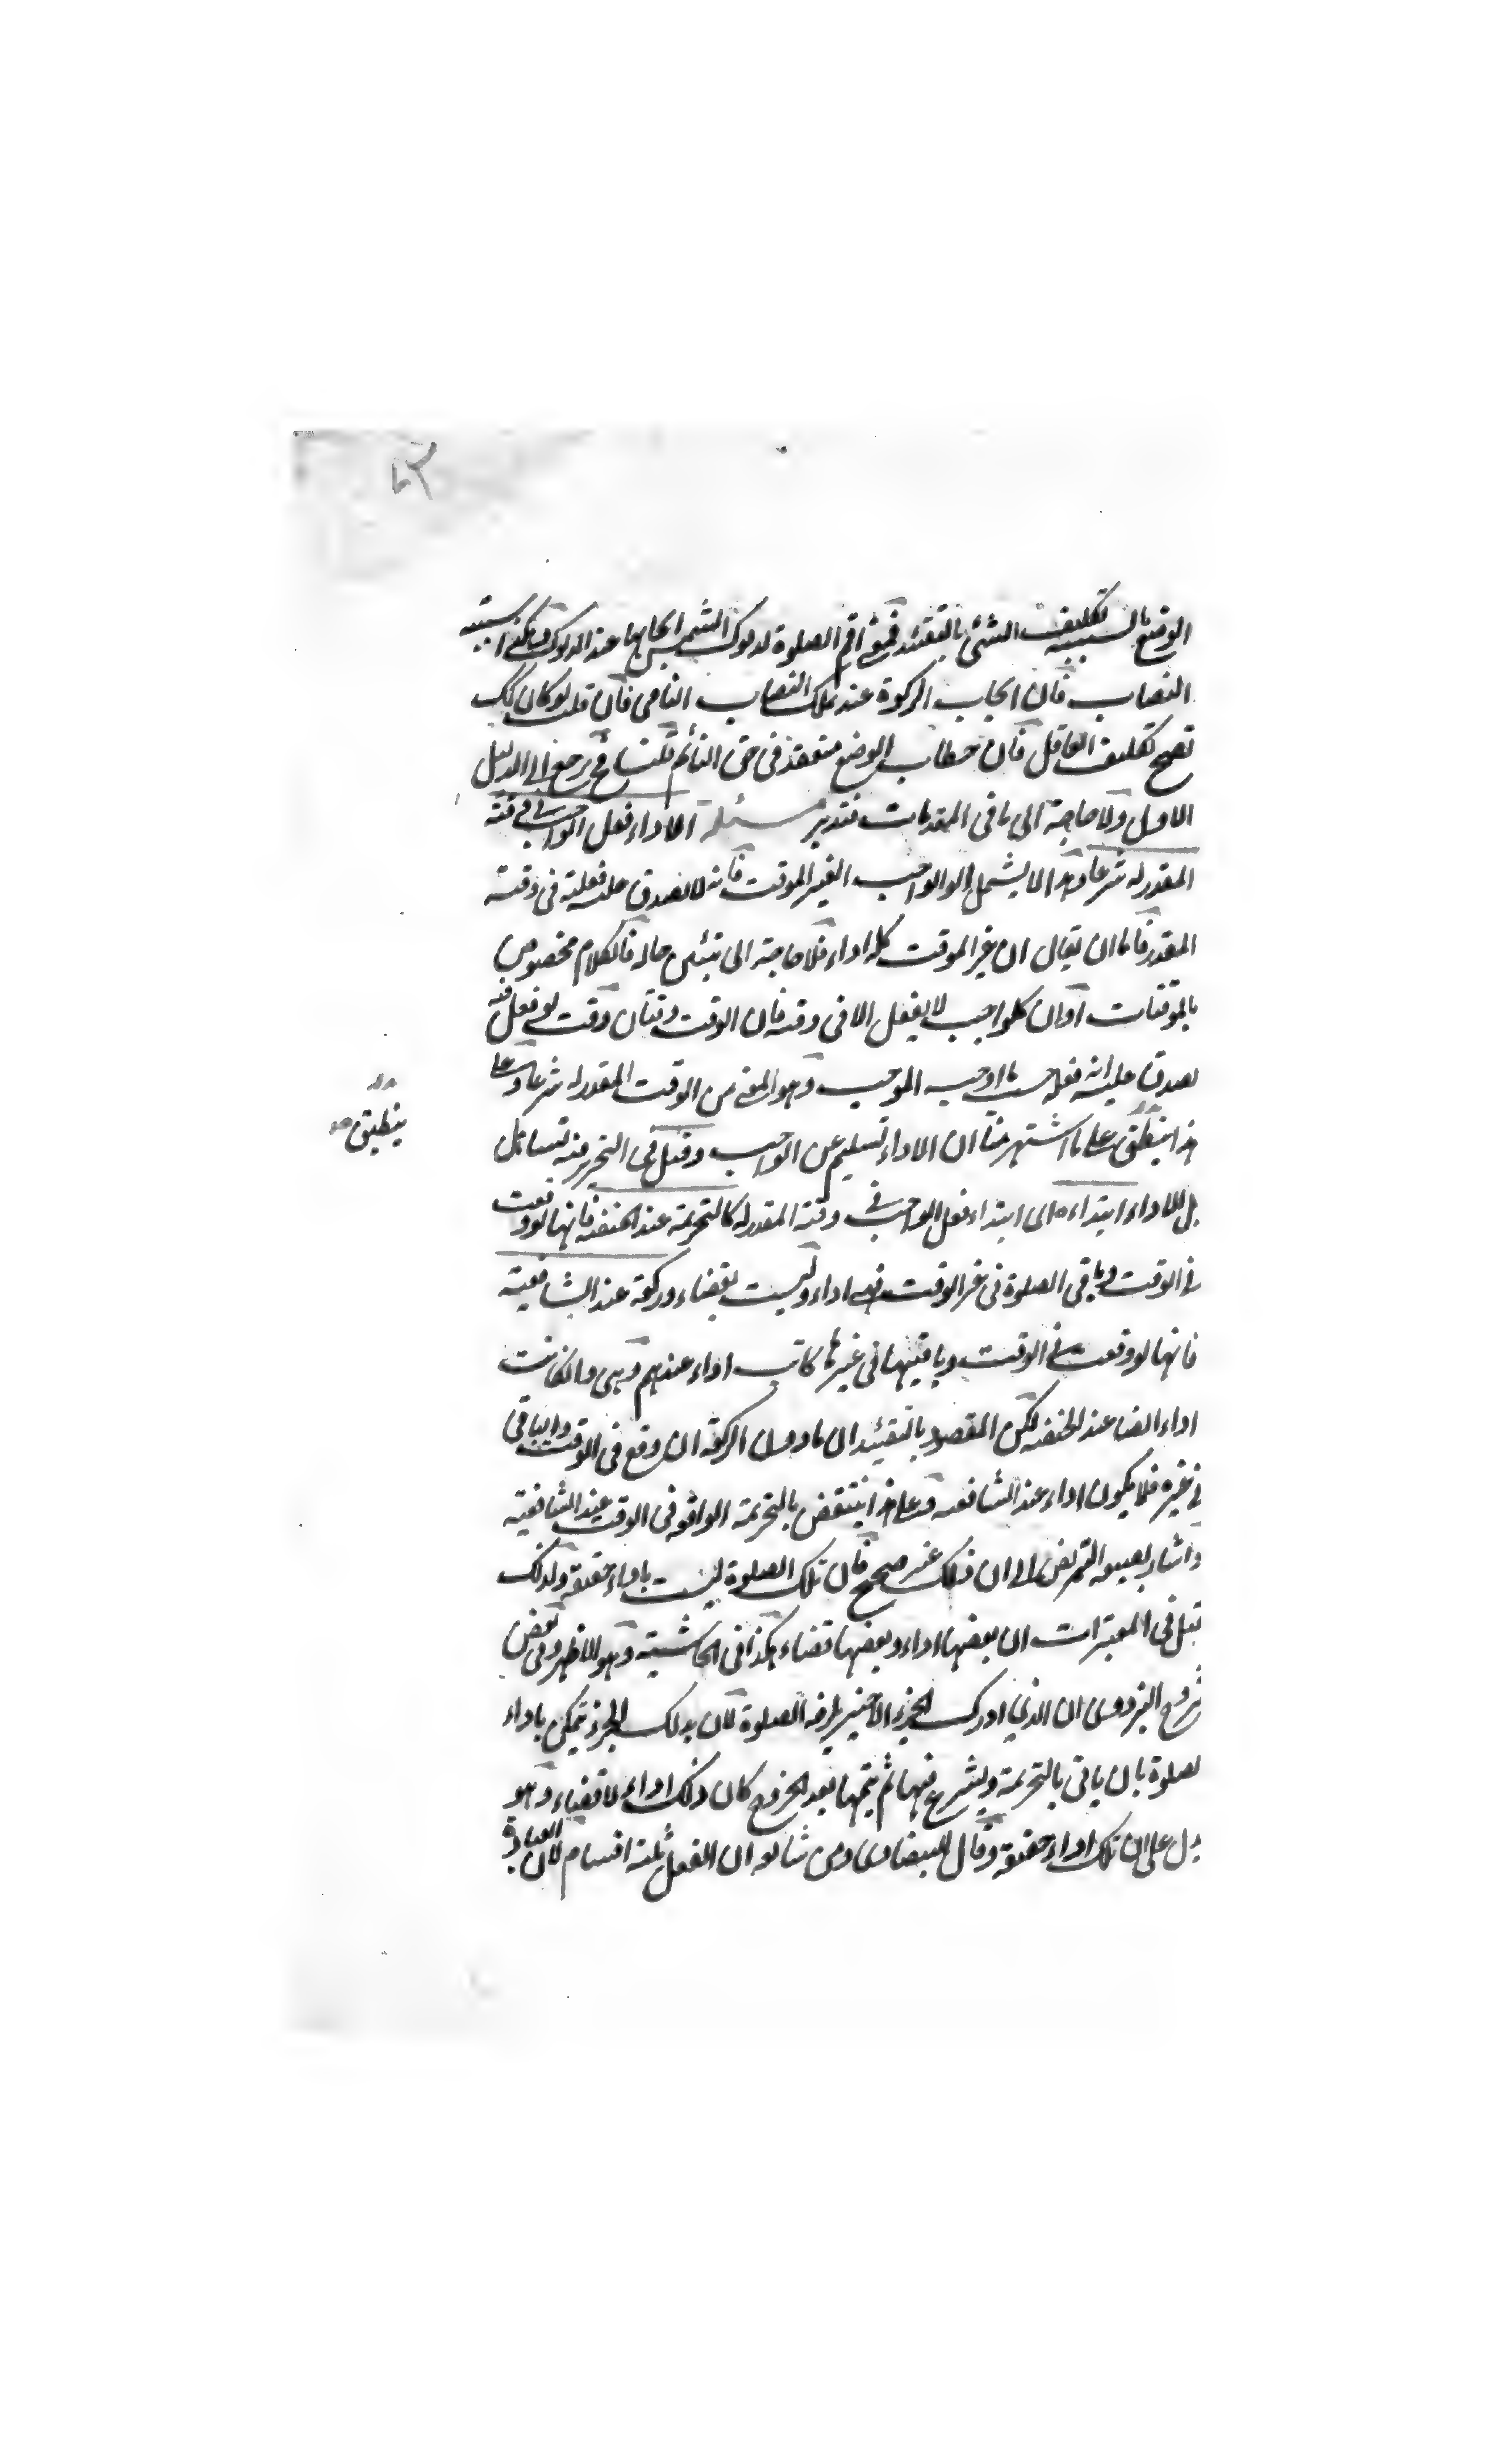 الوضع بالسببية تكليف الشئ بالتقئيد فمعنى اقم الصلوة لدلوك الشمس ايجابها عند الدلوك وهكذا سببية
النصاب فان ايجاب الزكوة عند ملك النصاب النامى فان قلت لو كان كك
تصح تكليف الغافل فان خطاب الوضع منعقد فى حق النائم قلت فح يرجع الى الدليل
الاول ولا حاجة الى باقى المقدمات فتدبر مسئله الاداء فعل الواجب فى وقته
المقدر له شرعا وهذا لا يشمل الواجب الغير الموقت فانه لا يصدق عليه فعلية فى وقته
المقدر فاما ان يقال ان غير الموقت كله اداء فلا حاجة الى حاله فالكلام مخصوص
بالموقتات او ان كلواجب لا يفعل الا فى وقته فان الوقت وقتان وقت لو فعل فيه
يصدق عليه انه فعل حسب ما اوجبه الموجب وهو المعنى من الوقت المقدر له شرعا وعلى
هذا ينطبق على ما اشتهر منا ان الاداء تسليم عين الواجب وقيل فى التحرير فيه تساهل
بل للاداء ابتداءه اى ابتداء فعل الواجب فى وقته المقدر له كالتحريمة عند الحنفية فانها لو وقعت
فى الوقت وباقى الصلوة فى غير الوقت فهى اداء وليست بقضاء وركعة عند الشافعية
فانها لو وقعت فى الوقت وباقيتها فى غيرها كانت اداء عندهم وهى وان كانت
اداء ايضا عند الحنفية لكن المقصود بالتقئيد ان مادون الركعة ان وقع فى الوقت والباقى
فى غيره فلا يكون اداء عند الشافعية وعلى هذا ينتقض بالتحريمة الواقعة فى الوقت عند الشافعية
واشار بصيغة التمريض الى ان ذلك غير صحيح فان تلك الصلوة ليست باداء حقيقة ولذلك
قيل فى المعتبرات ان بعضها اداء وبعضها قضاء هكذا فى الحاشية وهو الاظهر وفى بعض
شروح البزدوى ان الذى ادرك الجزء الاخير يلزمه الصلوة لان بذلك الجزء يتمكن باداء
لصلوة بان ياتى بالتحريمة ويشرع فيها ثم يتمها بعد الخروج كان ذلك اداء لا قضاء وهو
يدل على ان تلك اداء حقيقة وقال البيضاوى ومن تابعه ان الفعل ثلثة اقسام لان العبادة
ينطبق